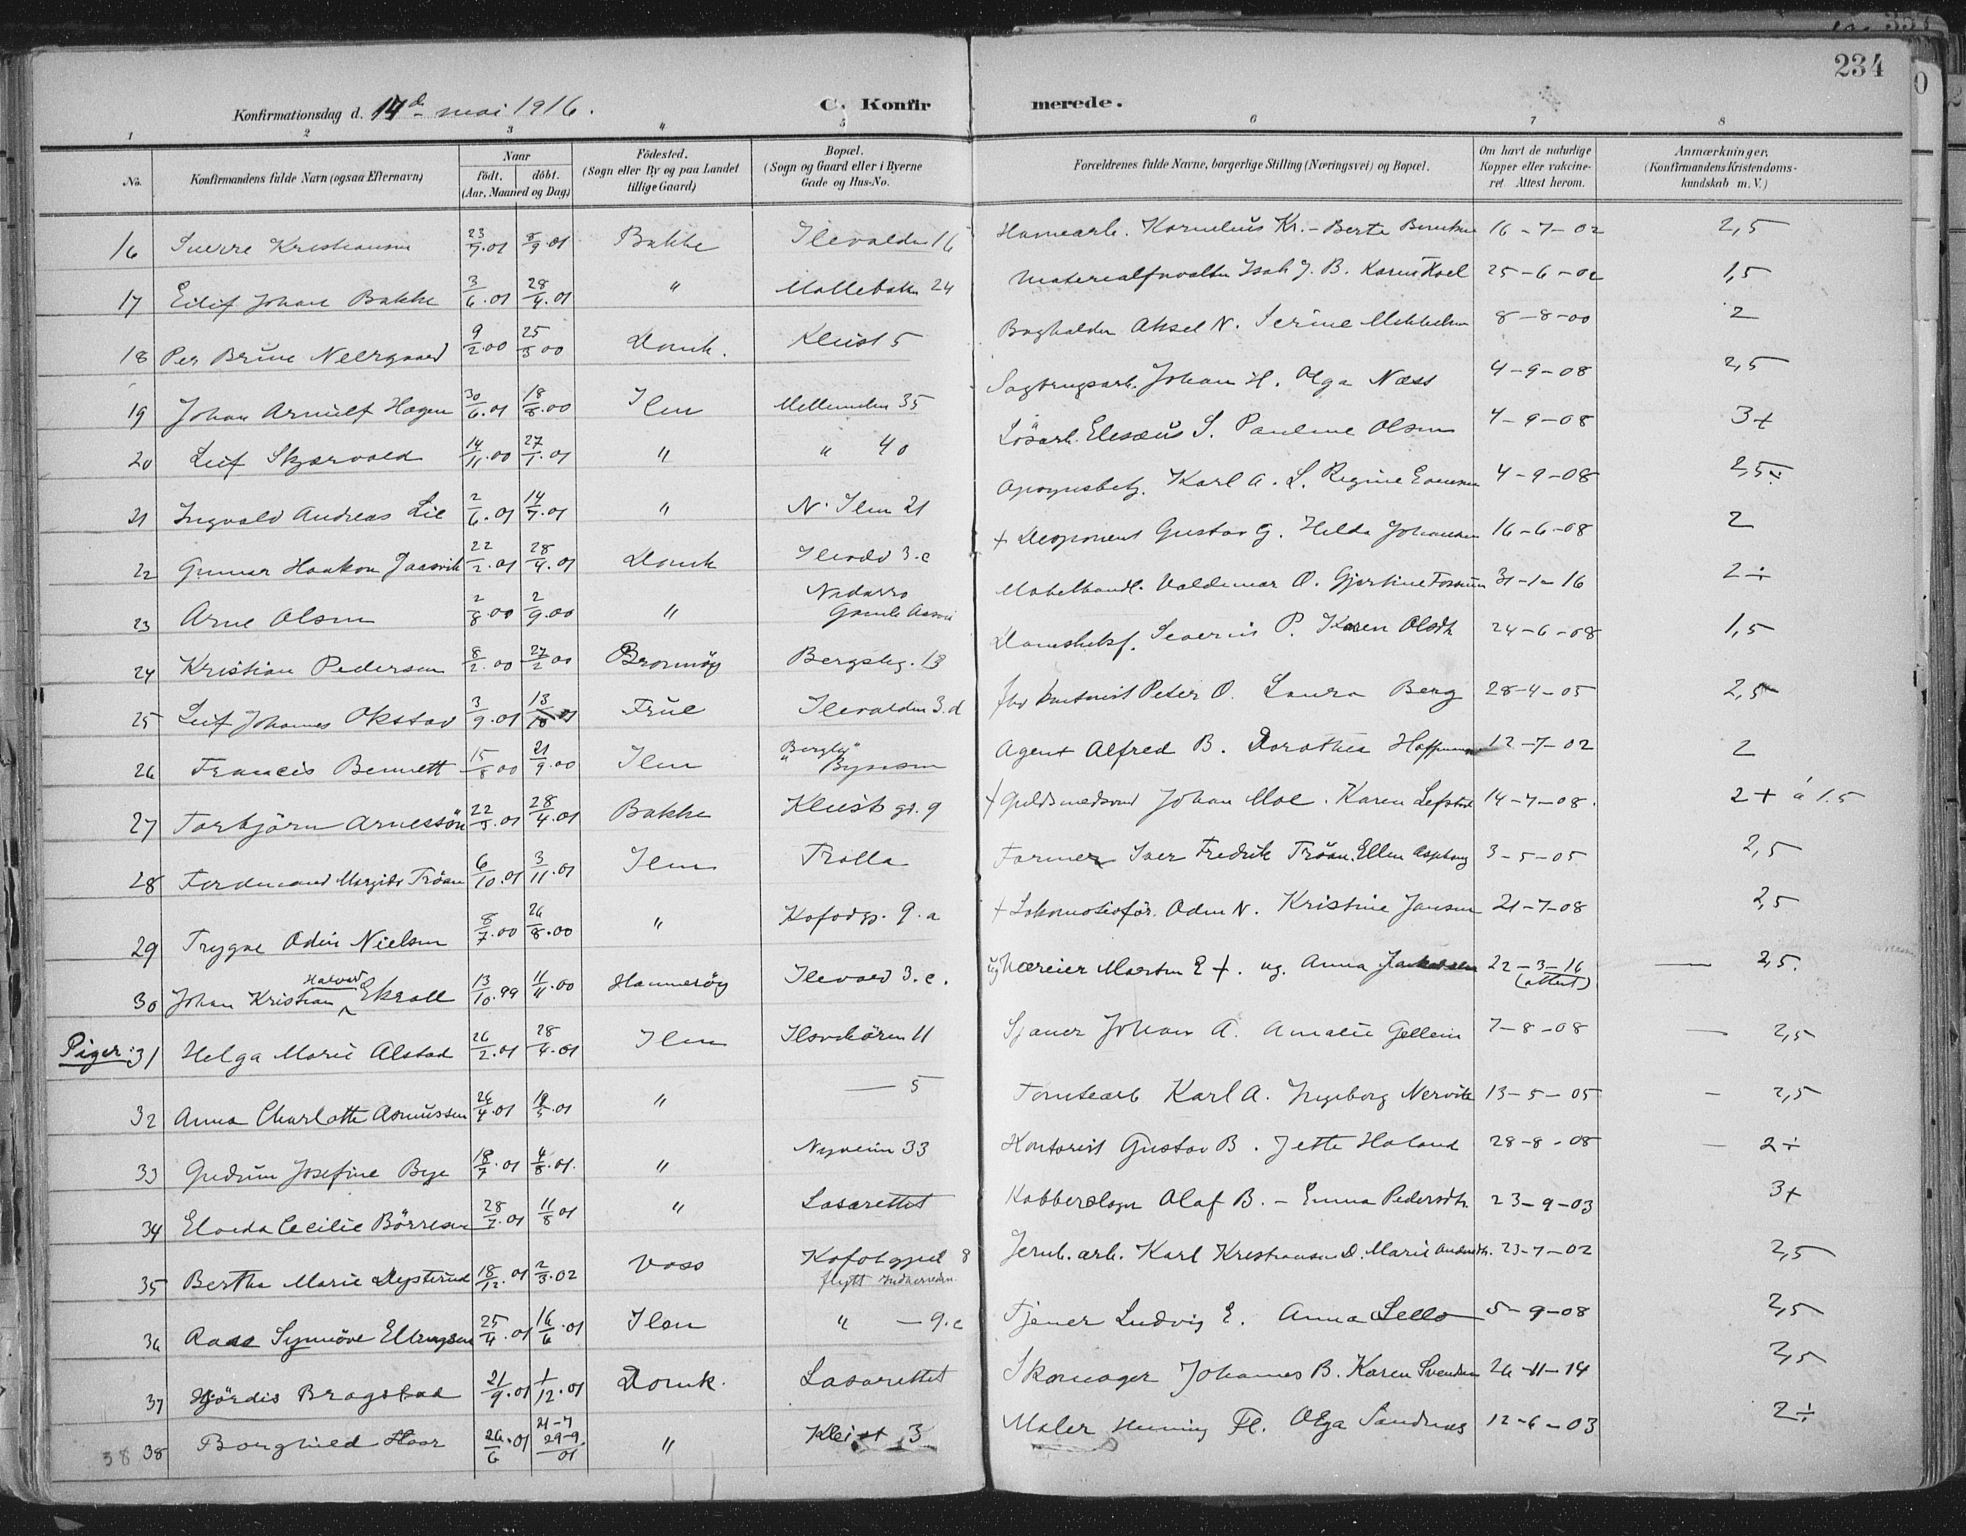 234
Konfirmationsdag d. 14d mai 1916. C. Konfirmerede.
1 2 3 4 5 6 7 8
No. Konfirmandens fulde Navn (ogsaa Efternavn) Naar födt. döbt. (Aar, Maaned og Dag) Födested. (Sogn eller By og paa Landet tillige Gaard) Bopæl. (Sogn og Gaard eller i Byerne Gade og Hus-No. Forældrenes fulde Navne, borgerlige Stilling (Næringsvei) og Bopæl. Om havt de naturlige Kopper eller vakcineret. Attest herom. Anmærkninger. (Konfirmandens Kristendomskundskab m. V.)
16 Sverre Kristiansen 23/7.01 8/9.01 Bakke Ilevolden 16 Havnearb. Kornelius Kr. - Berte 16-7-02 2,5
17 Eilif Johan Bakke 3/6.01 28/4.01 " Möllebakn 24 Materialforvalter Isak J. B. Karen Hoel 25-6-02 1,5
18 Per Bruun Neergaard 9/2 00 25/3 00 Domk. Kleist 5 Boghalder Aksel N. Serine 8-8-00 2
19 Johan Arnulf Hagen 30/6.01 18/8.00 Ilen Mellemilen 35 Sagbrugsarb. Johan H. Olga Næss 4-9-08 2,5
20 Leif Skjærvold 14/11.00 27/1.01 " " 40 Lösarb. Elesæus S. Pauline Olsen 4-9-08 3+
21 Ingvald Andreas Lie 2/6.01 14/7.01 " N. Ilen 21 Karl A. L. Regine 4-9-08 2,5÷
22 Gunnar Haakon 22/2.01 28/4.01 Domk Ilevold 3.c + Gustav G. Hilda Johansen 16-6-08 2
23 Arne Olsen 2/8.00 2/9.00 " Nidarvo Gamle Aasvei Möbelhandl. Valdemar O. Gjertine Fossum 31-1-16 2÷
24 Kristian Pedersen 8/2.00 27/2 00 Bronnöy Bergsteg. 13 Severin P. Karen Olsdt 24-6-08 1,5
25 Leif Johannes Okstad 3/9.01 13/10 01 Frue Ilevolden 3.d Peter O. Laura Berg 28-4-05 2,5
26 Francis Bennett 15/8 00 21/9.00 Ilen "Bergly" Bynesn Agent Alfred B. Dorothea Hoffmann 12-7-02 2
27 Torbjörn Arnessön 22/3.01 28/4.01 Bakke Kleists gt. 9 + Guldsmedsvend Johan Moe. Karen 14-7-08. 2+ á 1.5
28 Ferdinand Tröan 6/10.01 3/11.01 Ilen Trolla Former Iver Fredrik Tröan. Ellen 3-5-05 2,5
29 Trygve Odin Nielsen 8/7.00 26/8.00 " Kofodgt. 9.a + Lokomotivför. Odin N. Kristine Jansen 21-7-08 2,5
30 Johan Kristian Halvard Ekroll 13/10.99 11/11.00 Hammeröy Ilevold 3.c. Morten E +. ug. Anna 22-3-16 (attest) — 2,5.
Piger: 31 Helga Marie Alstad 26/2.01 28/4.01 Ilen Ilsvikören 11 Sjauer Johan A. Amalie Gellein 7-8-08 — 2,5
32 Anna Charlotte Asmussen 26/4.01 19/5.01 " — 5 Tomtearb Karl A. Ingeborg Nervik 13-5-05 - 2,5
33 Gudrun Josefine Bye 18/7.01 4/8.01. " Nyveien 33 Kontorist Gustav B. Jette Haland 28-8-08 — 2÷
34 Elvida Cecilie Börresen 28/7.01 11/8 01 " Lasarettet Kobberslager Olaf B. - Emma Pedersdt. 23-9-03 3+
35 Bertha Marie Dysterud 18/12.01 2/3.02 Voss Kofotgjed 8 flytt Indherreden. Jernb. arb. Karl Kristiansen D. Marie 23-7-02 2,5
36 Synnöve Ellingsen 25/4.01 16/6.01 Ilen " — 9.c Tjener Ludvig E. Anna Sello 5-9-08 2,5
37 Hjördis Bragstad 21/9.01 1/12.01 Domk. Lasarettet Skomager Johannes B. Karen Svendsen 26-11-14 2,5
38 38 Borghild 26/6.01 29-9 01 " Kleist 3 Maler Henning Fl. Olga Sandnæs 12-6-03 2÷